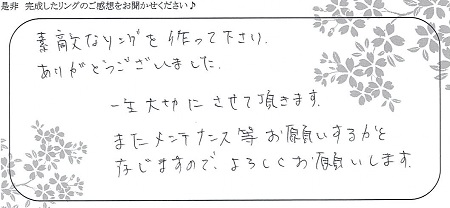 是非 完成したリングのご感想をお聞かせください♪
素敵なリングを作って下さり.
ありがとうございました.
一生大切にさせて頂きます.
またメンテナンス等お願いするかと
存じますので、よろしくお願いします.